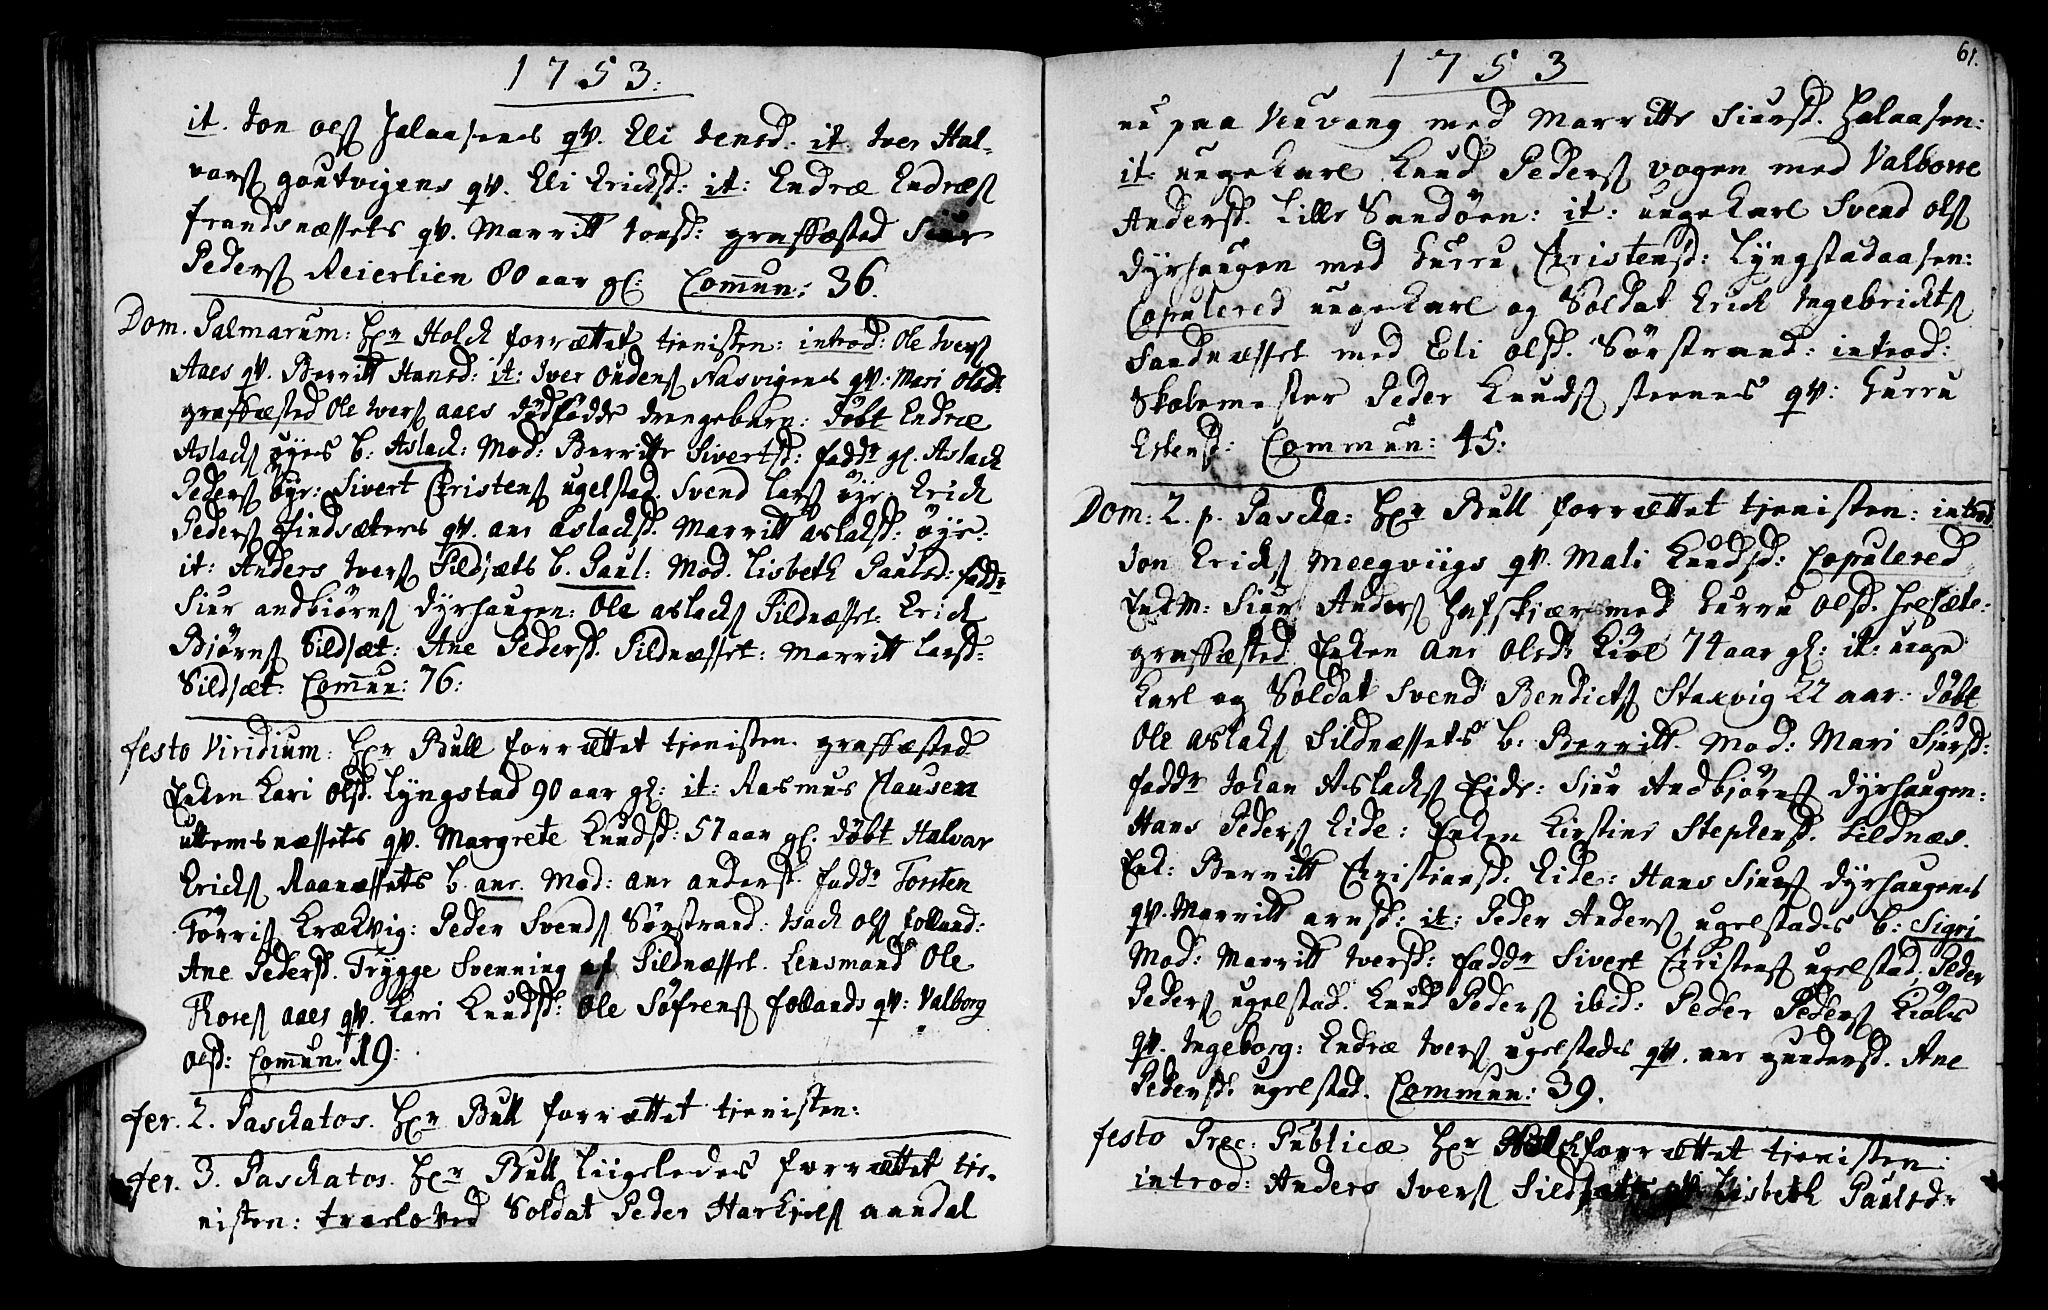 1753.
it. Jon Olß Jalaasenes qv. Eli Jensd: it. Iver Hal-
vorß goutvigens qv. Eli Ericksd: it: Endræ Endræß
frandsnæssets qv. Marritt Jonsd: graffæsted Siur
Pederß Reierlien 80 aar gl: Comun: 36.
Dom. Palmarum: Hr Holck forrættet tienisten: introd: Ole Iverß
Aaes qv. Berritt Hansd: it: Iver Oudenß Nasvigenes qv: Mari Olsd:
graffæsted Ole Iverß aaes dödfødde drengebarn: døbt Endræ
Aslackß øyes b. Aslack: Mod: Berritte Sivertsd: faddr gl. Aslack
Pederß øye: Sivert Christenß ugelstad. Svend Larß øye. Erick
Pederß Findsæters qv. ane aslacksd. Marritt aslaksd: öye:
it: Anders Iverß Sildsæts b. Paul: Mod. Lisbeth Paulsd: faddr
Siur andbiørnß dyrhaugen: Ole aslackß Sildnæsset. Erick
Biørnß Sildsæt: Ane Pedersd. Sildnæsset: Marritt Larsd:
Sildsæt: Comun: 76:
festo Viridium: Hr Bull forrættet tienisten. graffæsted
Enken Kari Olsd. Lyngstad 90 aar gl: it: Rasmus Clausen
uttemsnæssets qv. Margrete Knudsd: 57 aar gl. døbt Halvar
Erickß Raanæssets b. ane. Mod: ane andersd. faddr Torsten
Törrisß Krækvig: Peder Svendß Sörstrand: Isach Olß folland:
Ane Pedersd. Trygge Svenning af Sildnæsset. Lensmand Ole
Roseß aaes qv. Kari Knudsd: Ole Söfrenß follands qv: Valborg
Olsd: Comun: 19:
fer. 2. Paschatos. Hr Bull forrættet tienisten:
fer. 3. Paschatos. Hr Bull liigeledes forrættet tie-
nisten: troelowed Soldat Peder Harkielß anndal
1753
61.
nu paa Neuvang med Marritte Siursd. Halaasen:
it: ungekarl Knud Pederß vogen med Valborre
Andersd. Lille Sandöen: it: ungekarl Svend Olß
dyrhaugen med Gurru Christensd: Lyngstadaasen:
Copulered ungekarl og Soldat Erick Ingebricktß
Sandnæsset med Eli Olsd. Sörstrand: introd:
Skolemester Peder Knudß steenes qv: Gurru
Estensd: Commun: 45:
Dom: 2. p. Pascha: Hr Bull forrættet tienisten: introd
Jon Erickß Meegviigs qv. Mali Knudsd: Copulered
Enkm: Siur Anderß Hafskiær med Gurru Olsd. Helsæte:
graffæsted Enken Ane Olsd: Kiøl 74 aar gl: it: unge
karl og Soldat Svend Bendictß Staxvig 22 aar. døbt
Ole aslakß Sildnæssets b: Berritt. Mod: Mari Siursd:
faddr Johan Aslackß Eide: Siur Andbjörnß dyrhaugen:
Hans Pederß Eide: Enken Kirstine Stephensd. Sildnæs.
Enk: Berritt Christiansd: Eide: Hans Siurß dyrhaugens
qv. Marritt arnsd: it: Peder Anderß ugelstades b: Sigri
Mod: Marritt Iversd: faddr Sivert Christenß ugelstad. Peder
Pederß ugelstad. Knud Pederß ibid: Peder Pederß Kiøls
qv. Ingeborg: Endræ Iverß ugelstads qv. ane gundersd. Ane
Pedersd: ugelstad. Commun: 39.
festo Prec: Publicæ Hr Holck forrættet tienisten:
introd: Anders Iverß Sildsæts qv. Lisbeth Paulsd: